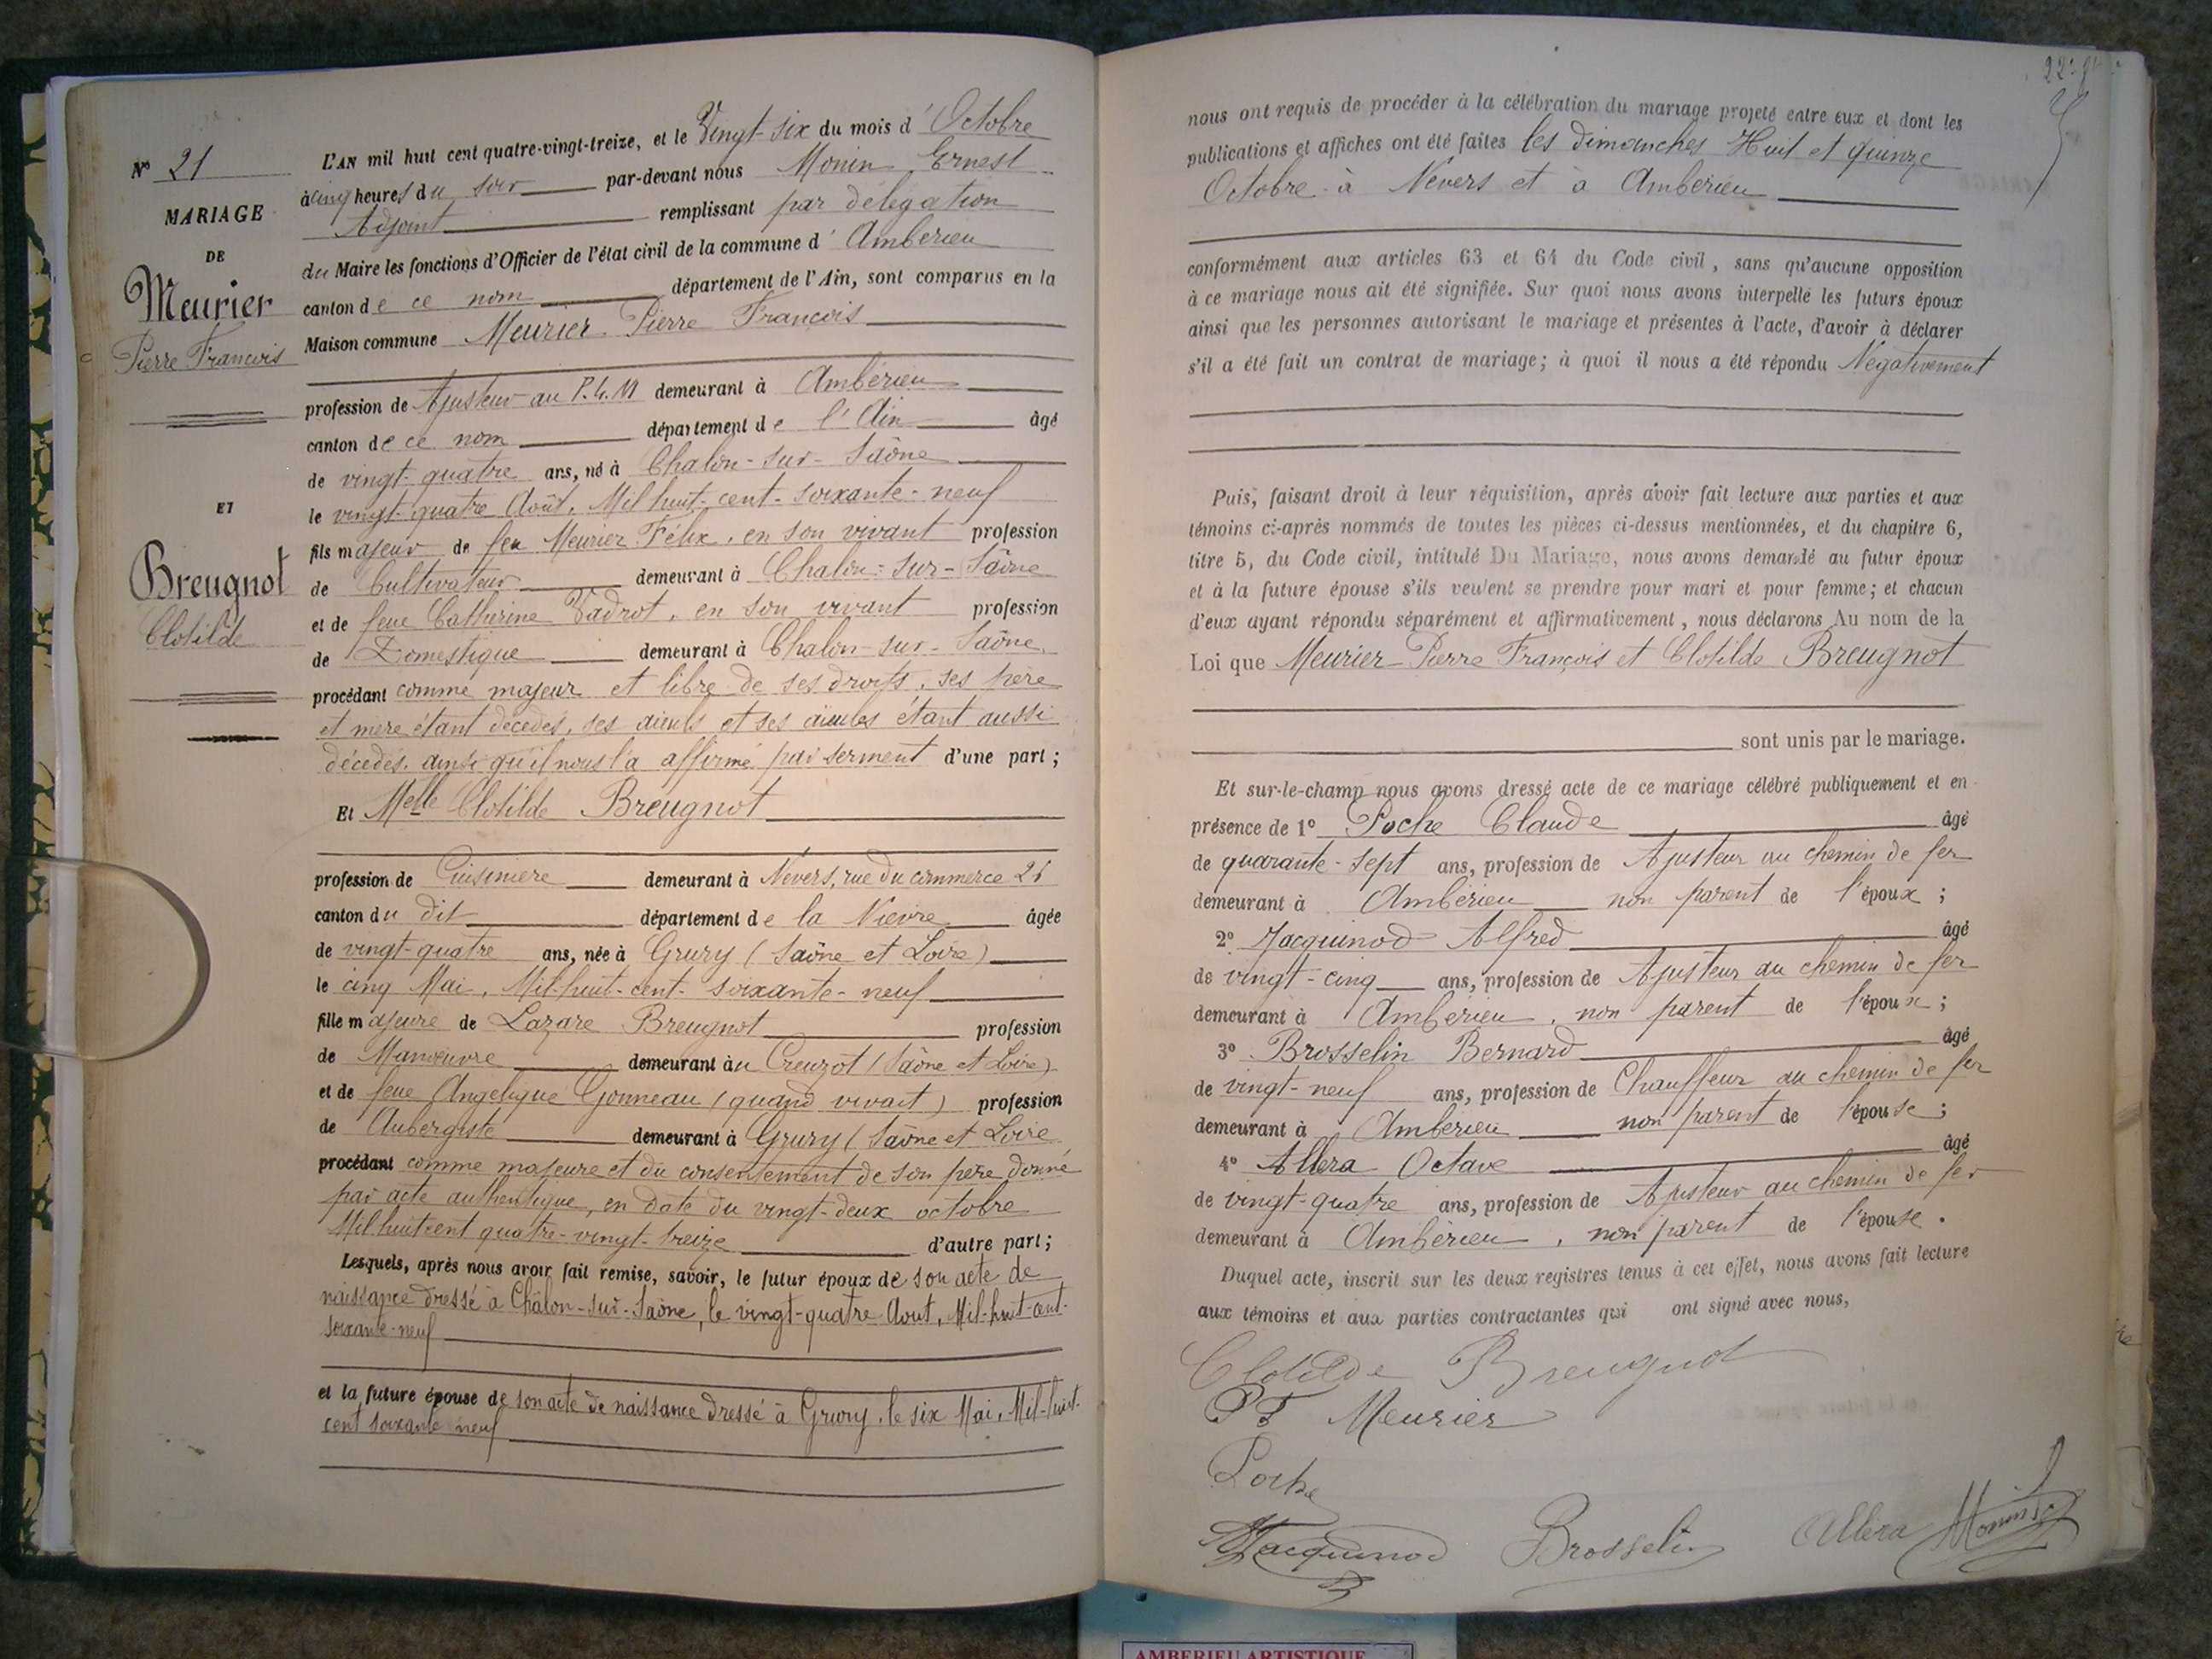 N° 21
MARIAGE
DE
Meurier
Pierre François
ET
Breugnot
Clotilde
L'AN mil huit cent quatre-vingt-treize, et le Vingt-six du mois d'Octobre
à cinq heures du soir par-devant nous Monin Ernest
Adjoint remplissant par délégation
du Maire les fonctions d'Officier de l'état civil de la commune d'Ambérieu
canton de ce nom département de l'Ain, sont comparus en la
Maison commune Meurier Pierre François
profession de Ajusteur au P.L.M demeurant à Ambérieu
canton de ce nom département de l'Ain âgé
de vingt-quatre ans, né à Chalon-sur-Saône
le vingt-quatre Août, Mil huit-cent-soixante-neuf
fils majeur de feu Meurier Félix, en son vivant profession
de Cultivateur demeurant à Chalon-sur-Saône
et de feue Catherine Vadrot, en son vivant profession
de Domestique demeurant à Chalon-sur-Saône
procédant comme majeur et libre de ses droits, ses père
et mère étant décédés, ses aieuls et ses aieules étant aussi
décédés, ainsi qu'il nous l'a affirmé par serment d'une part;
Et Melle Clotilde Breugnot
profession de Cuisinière demeurant à Nevers, rue du commerce
canton du dit département de la Nièvre âgée
de vingt-quatre ans, née à Grury (Saône et Loire)
le cinq Mai, Mil-huit-cent-soixante-neuf
fille majeure de Lazare Breugnot profession
de Manoeuvre demeurant au Creuzot (Saône et Loire)
et de feue Angelique Gonneau (quand vivait) profession
de Aubergiste demeurant à Grury (Saône et Loire
procédant comme majeure et du consentement de son père donné
par acte authentique, en date du vingt-deux octobre
Mil huit cent quatre-vingt-treize d'autre part;
Lesquels, après nous avoir fait remise, savoir, le futur époux de son acte de
naissance dressé à Châlon-sur-Saône, le vingt-quatre Aout, Mil-huit-cent-
soixante-neuf
et la future épouse de son acte de naissance dressé à Grury, le six Mai, Mil-huit-
cent soixante neuf
nous ont requis de procéder à la célébration du mariage projeté entre eux et dont les
publications et affiches ont été faites les dimanches Huit et quinze
Octobre à Nevers et à Ambérieu
conformément aux articles 63 et 64 du Code civil, sans qu'aucune opposition
à ce mariage nous ait été signifiée. Sur quoi nous avons interpellé les futurs époux
ainsi que les personnes autorisant le mariage et présentes à l'acte, d'avoir à déclarer
s'il a été fait un contrat de mariage; à quoi il nous a été répondu Négativement
Puis, faisant droit à leur réquisition, après avoir fait lecture aux parties et aux
témoins ci-après nommés de toutes les pièces ci-dessus mentionnées, et du chapitre 6,
titre 5, du Code civil, intitulé Du Mariage, nous avons demandé au futur époux
et à la future épouse s'ils veulent se prendre pour mari et pour femme; et chacun
d'eux ayant répondu séparément et affirmativement, nous déclarons Au nom de la
Loi que Meurier Pierre François et Clotilde Breugnot
sont unis par le mariage.
Et sur-le-champ nous avons dressé acte de ce mariage célébré publiquement et en
présence de 1° Poche Claude âgé
de quarante-sept ans, profession de Ajusteur au chemin de fer
demeurant à Ambérieu non parent de l'époux;
2° Jacquinod Alfred âgé
de vingt-cinq ans, profession de Ajusteur au chemin de fer
demeurant à Ambérieu, non parent de l'époux;
3° Brosselin Bernard âgé
de vingt-neuf ans, profession de Chauffeur au chemin de fer
demeurant à Ambérieu non parent de l'épouse;
4° Allera Octave âgé
de vingt-quatre ans, profession de Ajusteur au chemin de fer
demeurant à Ambérieu, non parent de l'épouse.
Duquel acte, inscrit sur les deux registres tenus à cet effet, nous avons fait lecture
aux témoins et aux parties contractantes qui ont signé avec nous,
Clotilde Breugnot
PF Meurier
Poche
Jacquinod Brosselin Allera Monin
AMBERIEU ARTISTIQUE